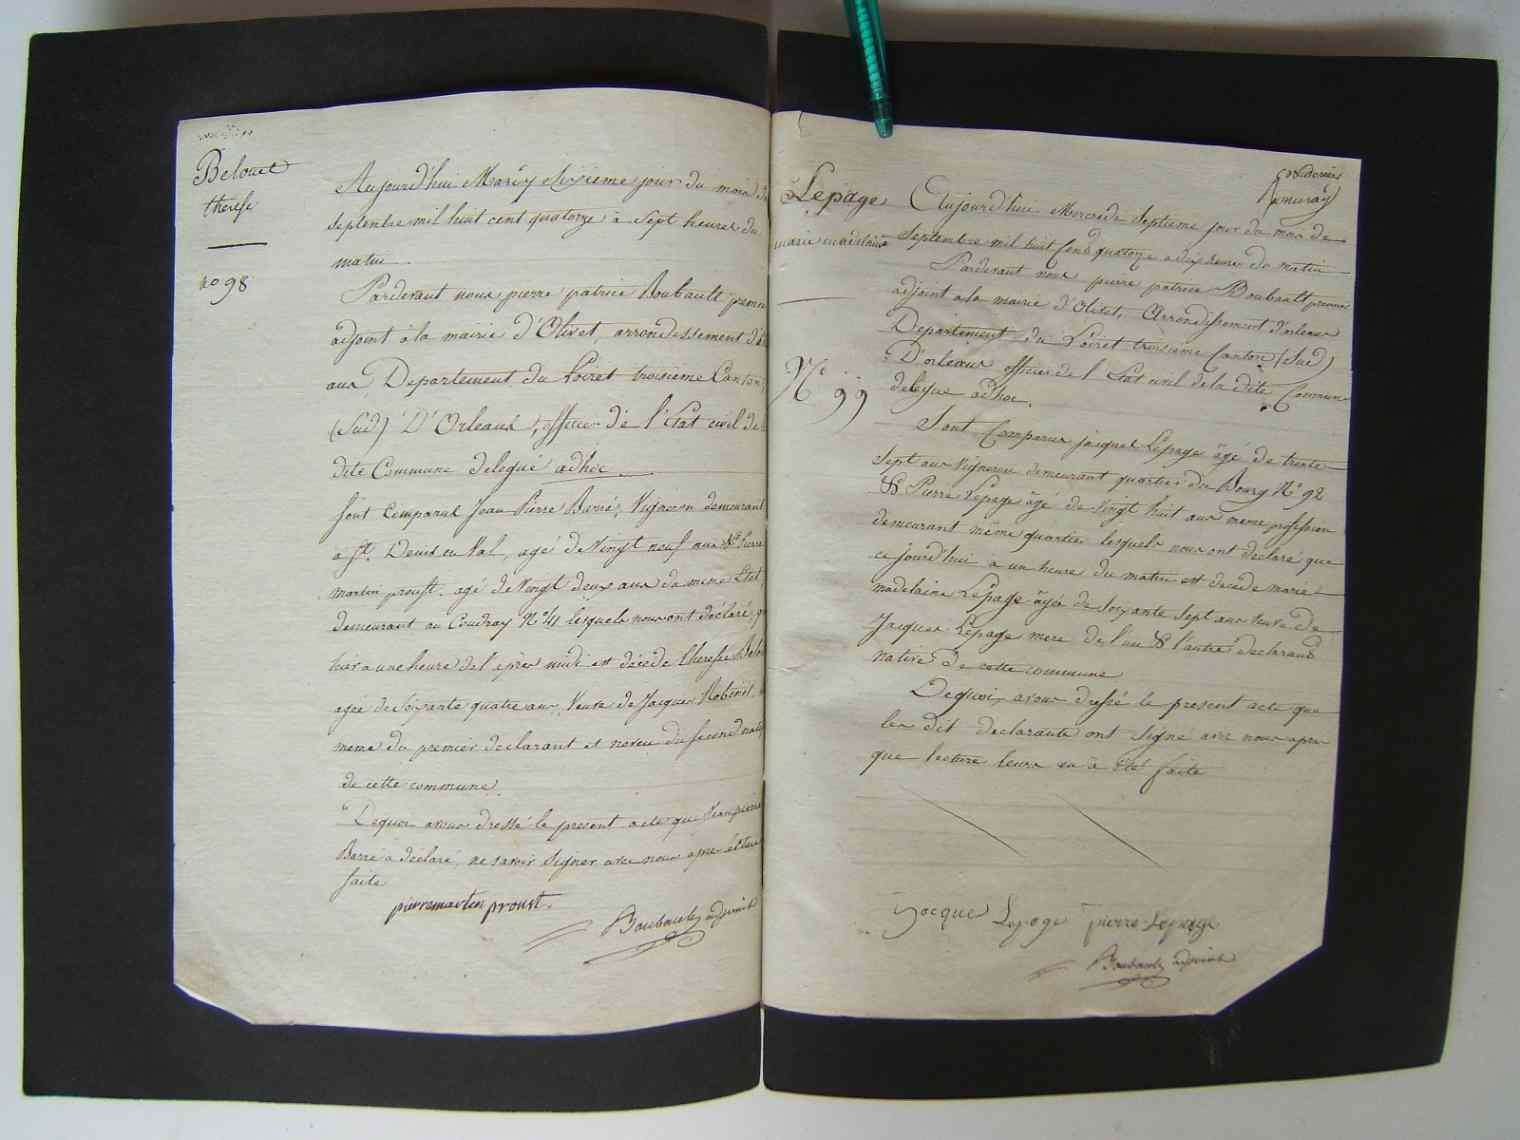 Belouet
therese
no 98
Aujourd'hui Mardy Sixieme jour du mois de
septembre mil huit cent quatorze à sept heures du
matin
Pardevant nous pierre patrice Boubault premier
adjoint à la mairie d'Olivet, arrondissement d'orle
ans, Departement du Loiret troisieme Canton
(Sud) D'Orleans, officier de l'Etat civil de
dite Commune delegué adhoc
sont Comparus Jean Pierre Barré, Vigneron demeurant
à St. Denis en Val, agé de Vingt neuf ans & Pierre
martin proust agé de Vingt deux ans du meme Etat,
demeurant au Coudray No 41 lesquels nous ont déclaré q
hier a une heure de l'aprés midi est décédé therese Belou
agée de Soixante quatre ans, Veuve de Jacques Robinet,
meme du premier declarant et neveu du second native
de cette commune.
Dequoi avons dressé le present acte que Jean pierre
Barré a déclaré, ne savoir Signer avec nous apres lecture
faite
pierre martin proust.
Boubault adjoint
Lepage
marie madelaine
No 99
Aujourd'hui Mercredi Septieme jour du mois de
Septembre mil huit Cent quatorze a dix heures du matin
Pardevant nous pierre patrice Boubault premier
adjoint a la mairie d'Olivet, Arrondissement d'orleans
Departement du Loiret troisieme Canton (Sud)
D'orleans officier de l'Etat civil de la dite Commune
delegue adhoc.
Sont Comparus jacques Lepage âgé de trente
sept ans Vigneron demeurant quartier du Bourg No 92
& Pierre Lepage âgé de Vingt huit ans meme profession
demeurant même quartier lesquels nous ont declaré que
ce jourd'hui a un heure du matin est decede marie
madelaine Lepage âgée de Soixante sept ans Veuve de
Jacques Lepage mere de l'un & l'autre declarans
native de cette commune
Dequoi, avons dressé le present acte que
les dit declarants ont signé avec nous apres
que lecture leurs en a été faite
Jacques Lepage pierre Lepage
Boubault adjoint